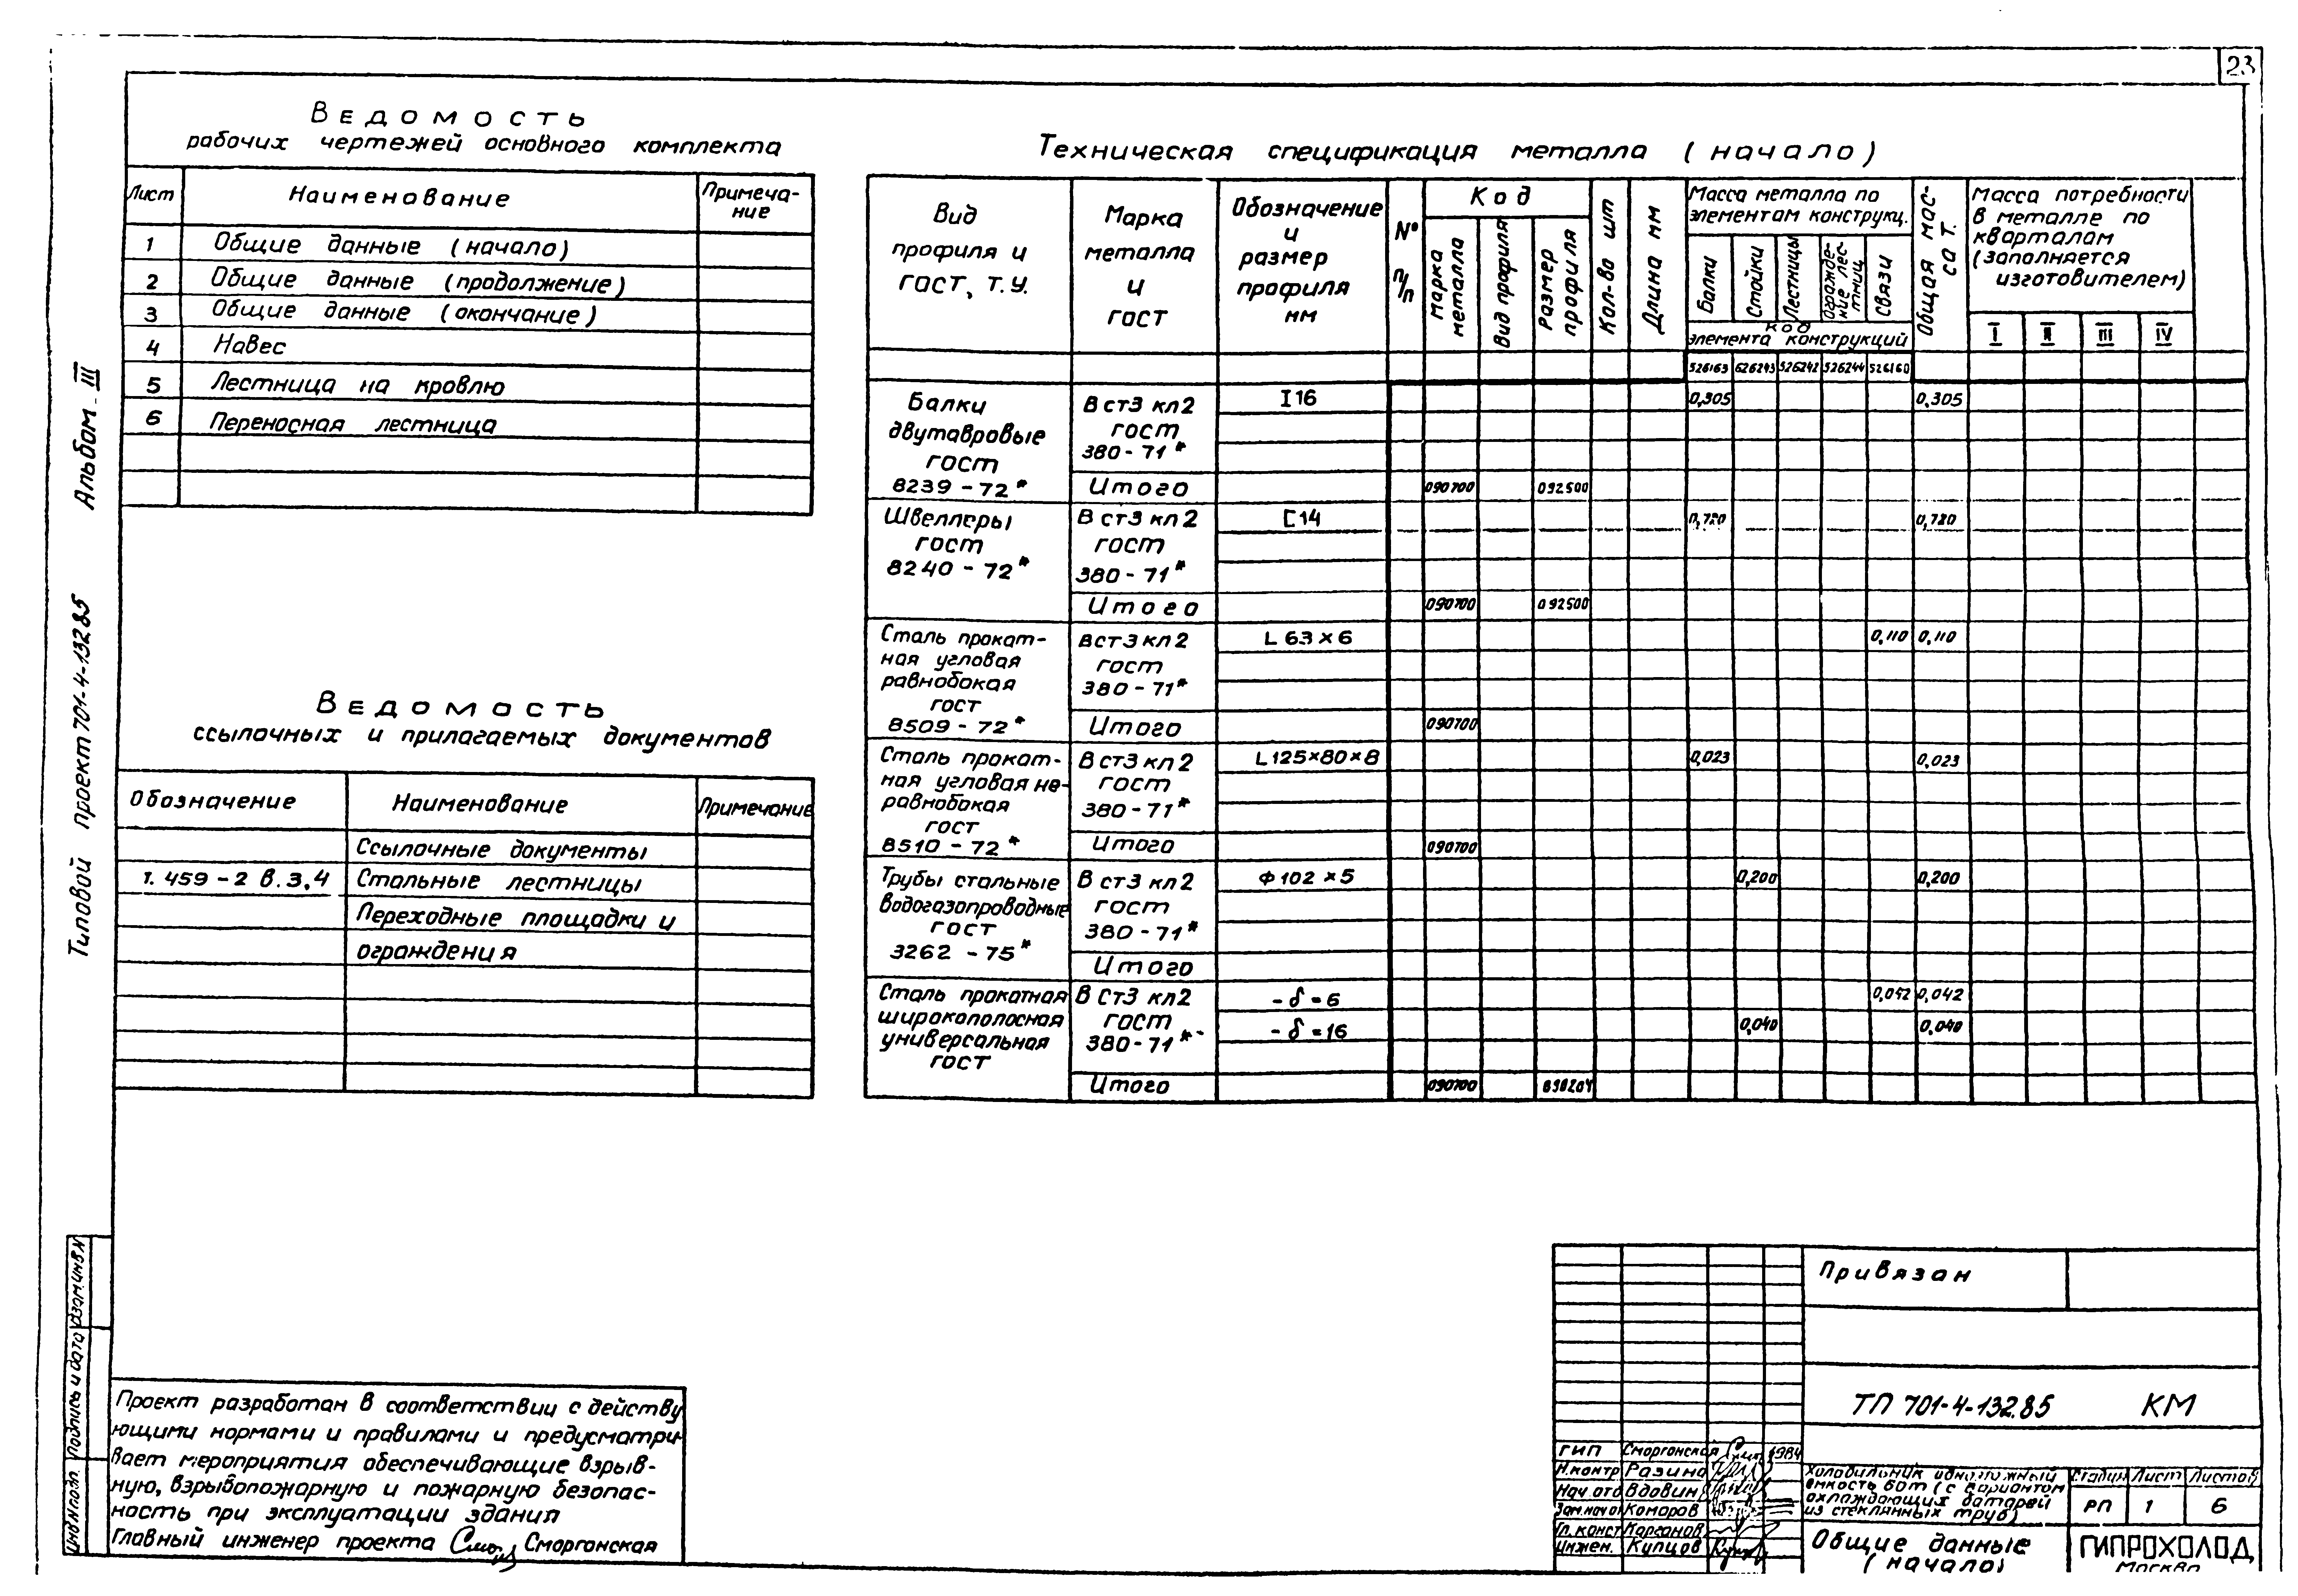 23
Альбом III
Типовой проект 701-4-132.85
Ведомость
рабочих чертежей основного комплекта
Лист
Наименование
Примеча-
ние
1 Общие данные (начало)
2 Общие данные (продолжение)
3 Общие данные (окончание)
4 Навес
5 Лестница на кровлю
6 Переносная лестница
Ведомость
ссылочных и прилагаемых документов
Обозначение Наименование Примечание
Ссылочные документы
1. 459-2 в.3,4 Стальные лестницы
Переходные площадки и
ограждения
Техническая спецификация металла (начало)
Вид
профиля и
гост, т.у.
Марка
металла
и
гост
Обозначение
и
размер
профиля
мм
№
п/п
Код
марка
металла
Вид профиля
Размер
профиля
Кол-во шт
Длина мм
Масса металла по
элементам конструкц.
Балки
Стойки
Лестницы
Огражде-
ние лес-
тниц
Связи
код
элемента конструкций
526163 626243 526242 526244 526160
Общая мас-
са т.
Масса потребности
в металле по
кварталам
(заполняется
изготовителем)
I II III IV
Балки
двутавровые
гост
8239-72*
Вст3 кл2
гост
380-71*
I16
0,305 0,305
Итого 090700 092500
Швеллеры
гост
8240-72*
Вст3 кл2
гост
380-71*
[14
0,720 0,720
Итого 090700 092500
Сталь прокат-
ная угловая
равнобокая
гост
8509-72*
Вст3 кл2
гост
380-71*
L 63×6
0,110 0,110
Итого 090700
Сталь прокат-
ная угловая не-
равнобокая
гост
8510-72*
Вст3 кл2
гост
380-71*
L125×80×8
0,023 0,023
Итого 090700
Трубы стальные
водогазопроводные
гост
3262-75*
Вст3 кл2
гост
380-71*
Ф102×5
0,200 0,200
Итого
Сталь прокатная
широкополосная
универсальная
гост
Вст3 кл2
гост
380-71*
- δ=6
0,042 0,042
- δ=16
0,040 0,040
Итого 090700
Взам.инв.№
Подпись и дата
Инв.№подл.
Проект разработан в соответствии с действу
ющими нормами и правилами и предусматри-
вает мероприятия обеспечивающие взрыв-
ную, взрывопожарную и пожарную безопас-
ность при эксплуатации здания
Главный инженер проекта Сморгонская
Привязан
ТП 701-4-132.85 КМ
ГИП Сморгонская 1984
Н.контр Разина
Нач.отд Вдовин
Зам.нач.о Комаров
Гл.конст Карсанов
Инжен. Купцов
Холодильник одноэтажный
емкость 60т (с вариантом
охлаждающих батарей
из стеклянных труб)
Стадия Лист Листов
РП 1 6
Общие данные
(начало)
ГИПРОХОЛОД
Москва